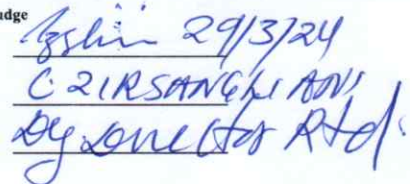 udge
29/3/24
C ZIRSANGLIANI
Dy Director Rtd.